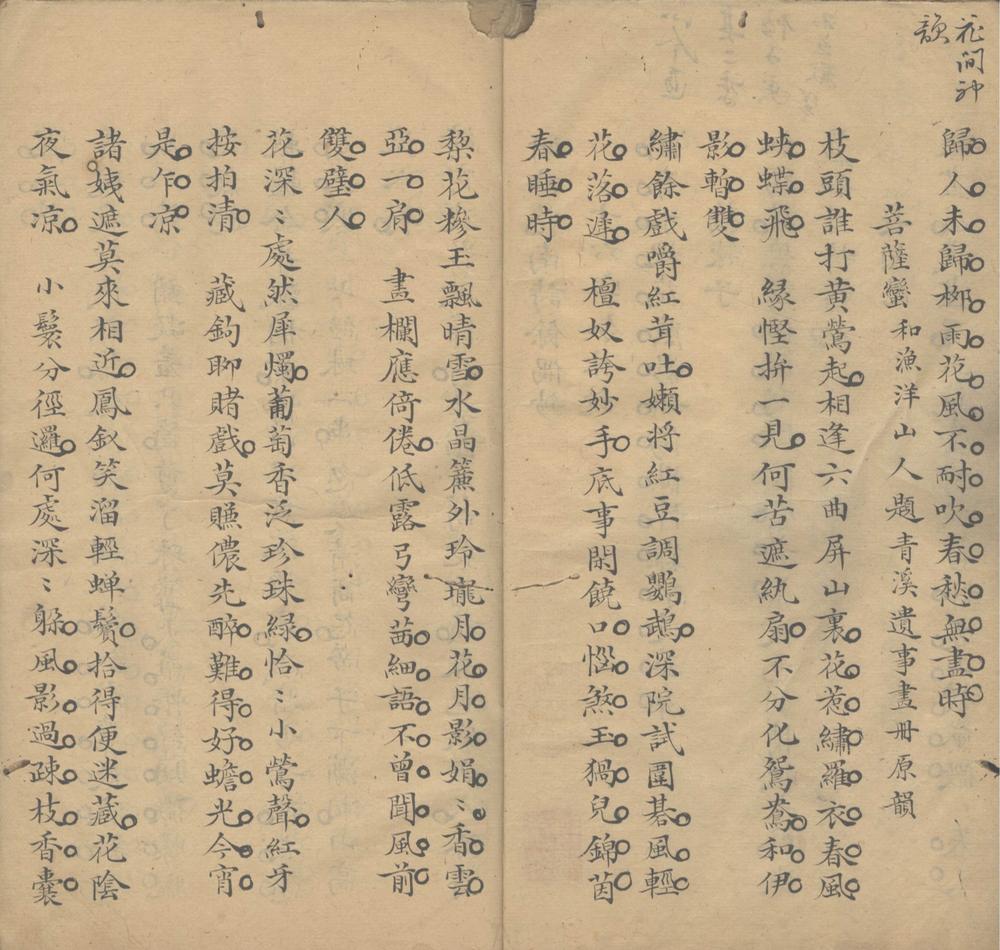 花間神
韻
歸人未歸柳雨花風不耐吹春愁無盡時
菩薩蠻和漁洋山人題青溪遺事畫册原韻
枝頭誰打黃鶯起相逢六曲屏山裏花惹繡羅衣春風
蛺蝶飛　緣慳拚一見何苦遮紈扇不分化鴛鴦和伊
影暫雙
繡餘戲嚼紅茸吐嬾將紅豆調鸚鵡深院試圍棊風輕
花落遲　檀奴誇妙手底事閑饒口惱煞玉猧兒錦茵
春睡時
棃花糝玉飄晴雪水晶簾外玲瓏月花月影娟〻香雲
亞一肩　畫欄應倚倦低露弓彎茜細語不曾聞風前
雙璧人
花深〻處然犀燭葡萄香泛珍珠綠恰〻小鶯聲紅牙
按拍清　藏鉤聊賭戲莫賺儂先醉難得好蟾光今宵
是乍凉
諸姨遮莫來相近鳳釵笑溜輕蟬鬢拾得便迷藏花陰
夜氣凉　小鬟分徑邏何處深〻躲風影過疎枝香囊